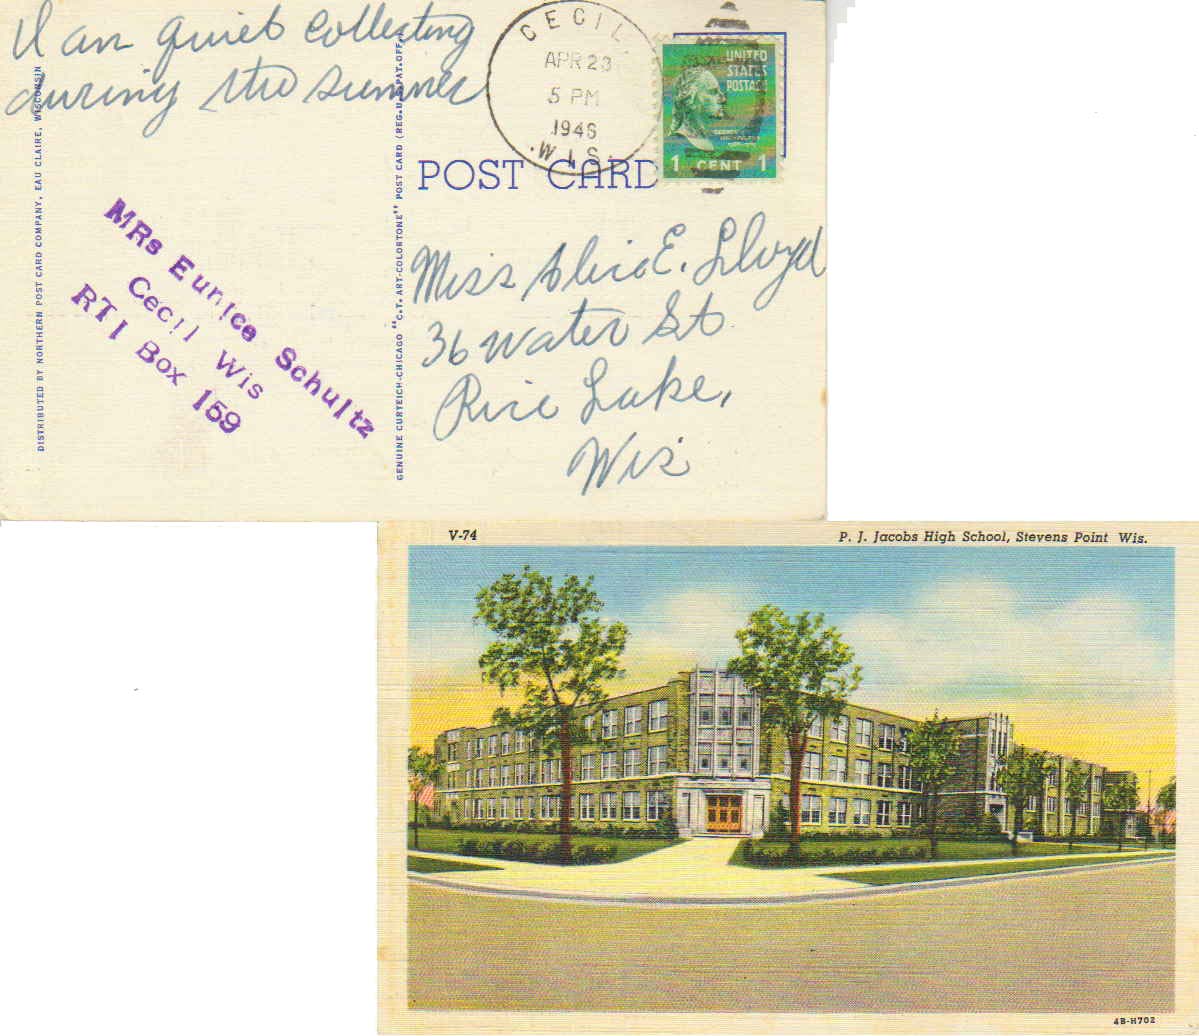 I am quiet collecting
during the summer
CECIL.
APR 23
5 PM
1946
.WIS.
UNITED
STATES
POSTAGE
1 CENT 1
POST CARD
DISTRIBUTED BY NORTHERN POST CARD COMPANY, EAU CLAIRE, WISCONSIN
MRs Eunice Schultz
Cecil Wis
RT1 Box 159
GENUINE CURTEICH-CHICAGO "C.T. ART-COLORTONE" POST CARD (REG. U.S. PAT. OFF.)
Miss Alice E. Lloyd
36 Water St
Rice Lake,
Wis
V-74
P. J. Jacobs High School, Stevens Point Wis.
4B-H702